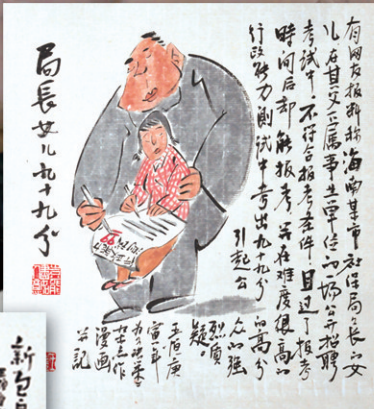 有网友报料称海南某市社保局局长的女
儿在其父下属事业单位的一场公开招聘
考试中，不符合报考条件，且过了报考
時间后却能报考，并在难度很高的
行政能力测试中考出九十九分的高分
引起公众的强
烈质
疑。
庚
寅年
作
漫画
并記
局長女儿九十九分
新